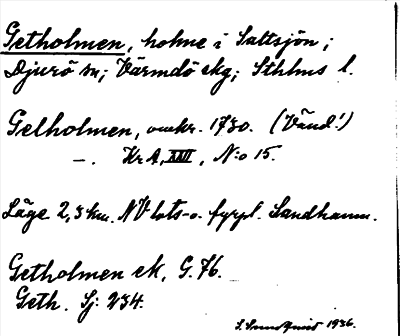 Getholmen, holme i Saltsjön;
Djurö sn; Värmdö skg; Sthlms l.
Getholmen, omkr. 1730. (Vänd!)
—. Kr A, XXVI, N:o 15.
Läge 2,3 km. NV lots- o. fyrpl. Sandhamn.
Getholmen ek, G. 76.
Geth. Sj: 234.
1936.